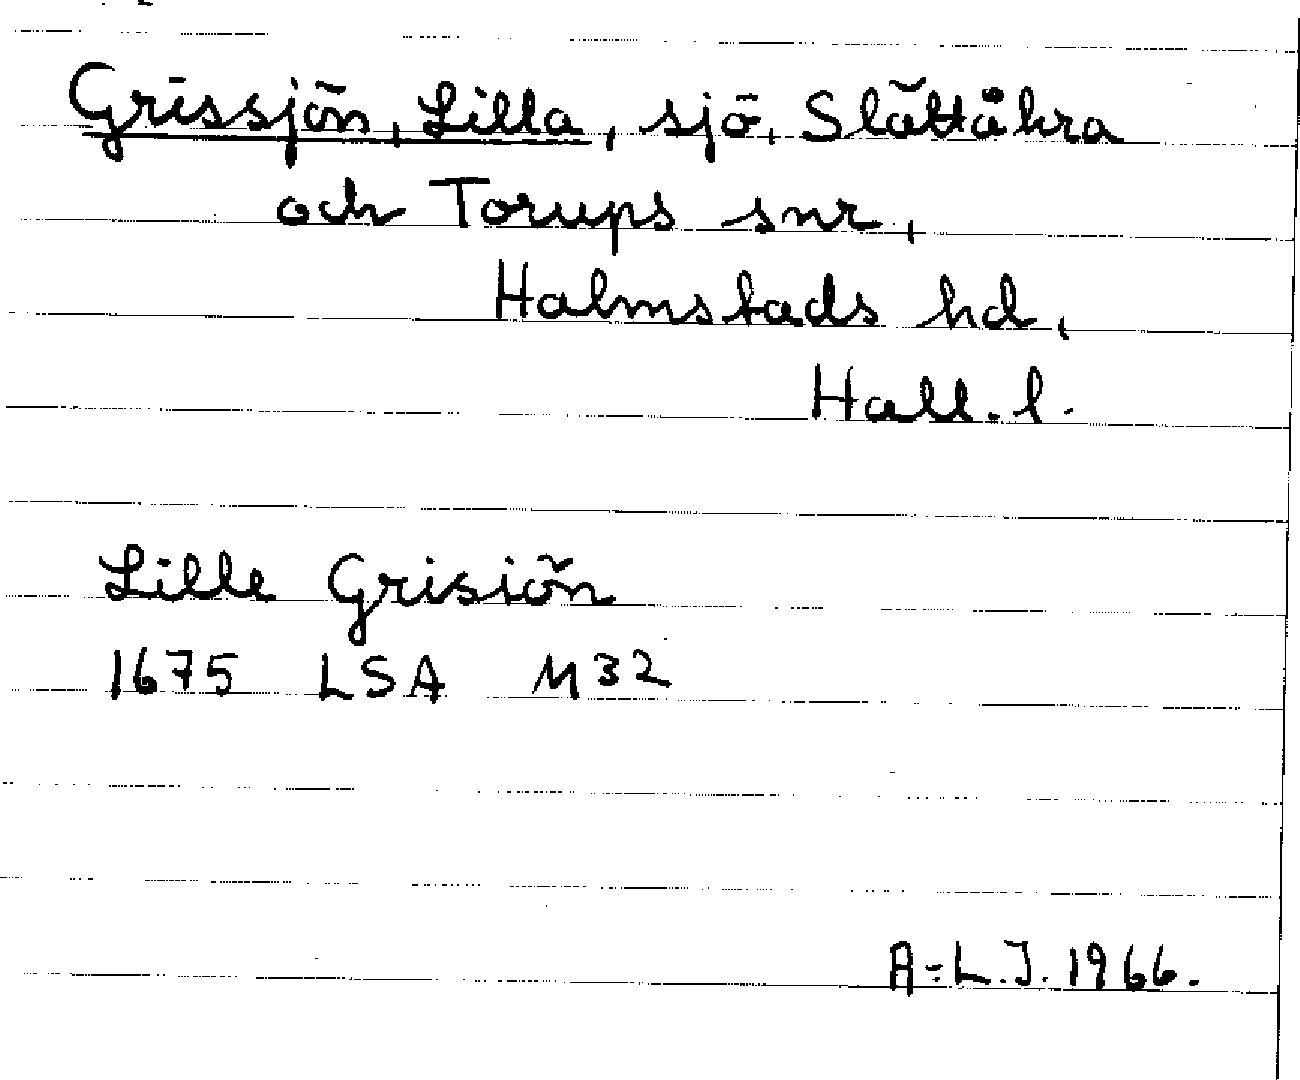 Grissjön, Lilla, sjö, Slättåkra
och Torups snr,
Halmstads hd,
Hall. l.
Lille Grisiön
1675 LSA M32
A-L.J. 1966.